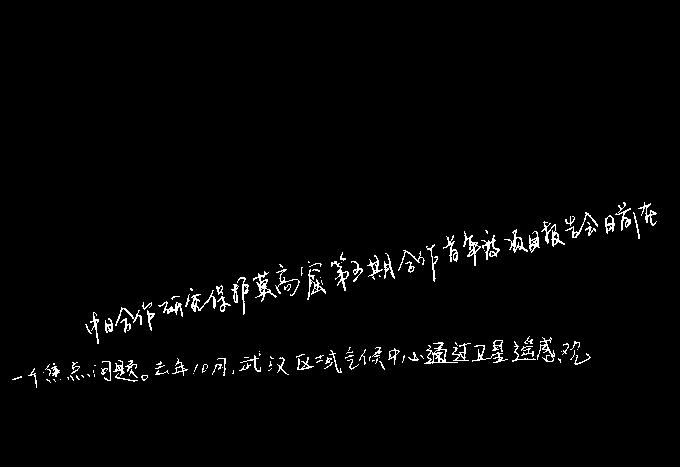 中日合作研究保护莫高窟第五期合作首年度项目报告会日前在
一个焦点问题。去年10月，武汉区域气候中心通过卫星遥感观